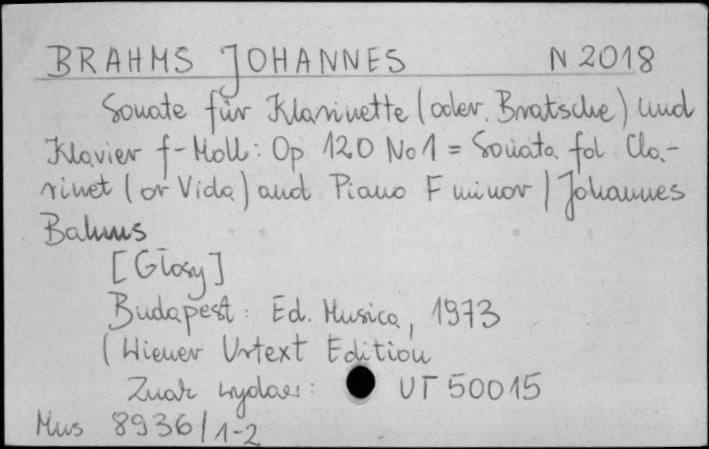 BRAHMS JOHANNES N 2018
Sonate für Klarinette (oder Bratsche) und
Klavier f-Moll: Op 120 No 1 = Sonata fol Cla-
rinet (or Viola) and Piano F minor / Johannes
Bahms
[Głosy]
Budapest: Ed. Musica, 1973
(Wiener Urtext Edition
Znak wydaw: UT 50015
Mus 8936/1-2